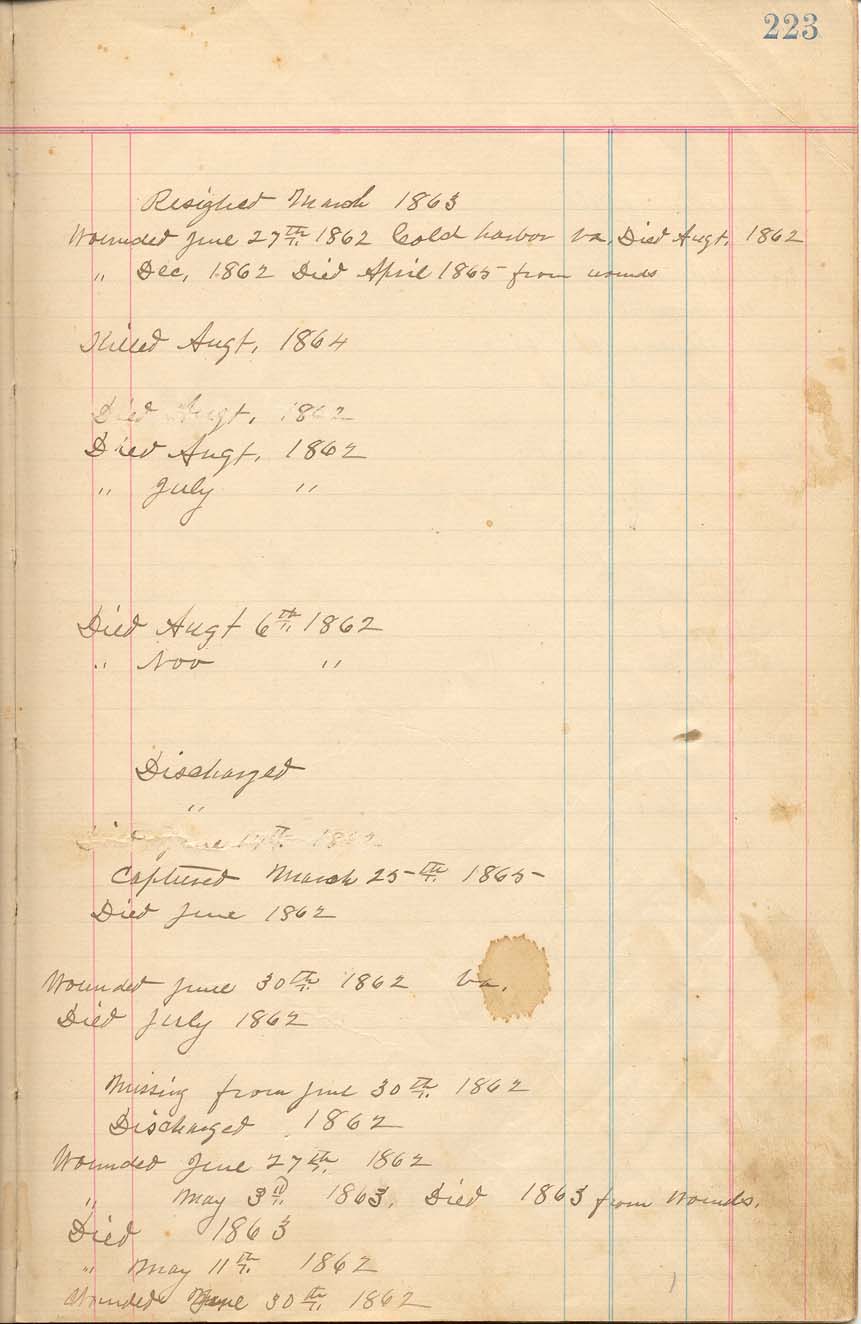 223
Resigned March 1863
Wounded June 27th 1862 Cold harbor Va. Died Augt. 1862
" Dec, 1862 Died April 1865 from wounds
Killed Augt, 1864
Died Augt, 1862
Died Augt, 1862
" July "
Died Augt 6th 1862
" Nov "
Discharged
"
June 1862
Captured March 25th 1865
Died June 1862
Wounded June 30th 1862 Va.
Died July 1862
Missing from June 30th 1862
Discharged 1862
Wounded June 27th 1862
" May 3d 1863. Died 1863 from wounds.
Died 1863
" May 11th 1862
Wounded June 30th 1862